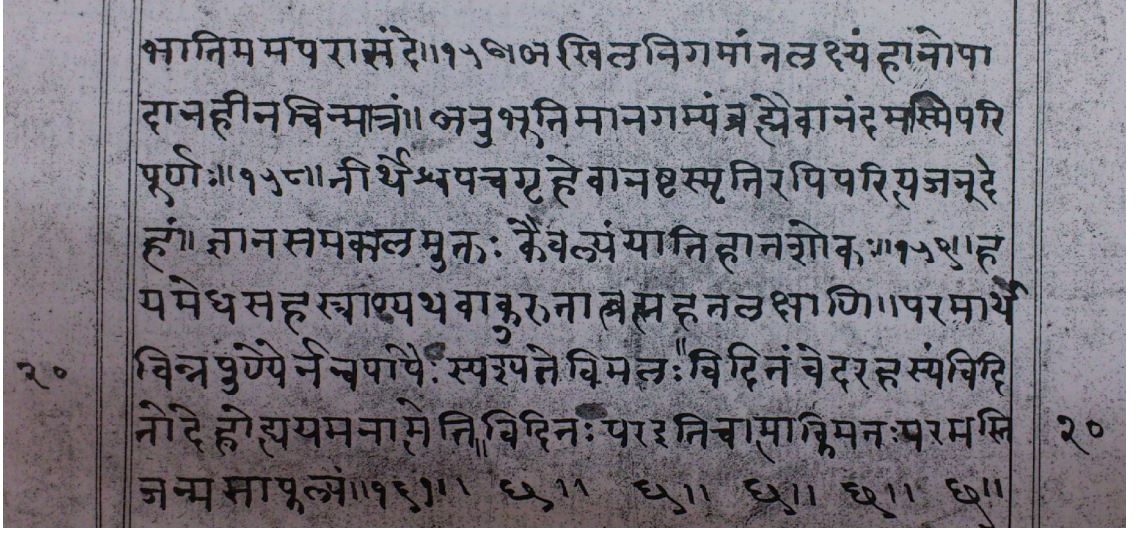 भातिममपरानंदे॥१५७॥अखिलनिगमांतलक्ष्यंहानोपा
दानहीनचिन्मात्रं॥अनुभूतिमानगम्यंब्रह्मैवानंदमस्मिपरि
पूर्णः॥१५८॥तीर्थेश्वपचगृहेवानष्टस्मृतिरपिपरित्यजन्दे
हं॥ज्ञानसमकालमुक्तःकैवल्यंयातिहतशोकः॥१५९॥ह
यमेधसहस्राण्यथवाकुरुताब्रह्महननलक्षाणि॥परमार्थ
विन्नपुण्यैर्नचपापैःस्पृश्यतेविमलः॥विदितंचेदरहस्यंविदि
तोदेहोह्ययमनात्मेतिविदितःपरइतिचात्माकिमतःपरमस्ति
जन्मसाफल्यं॥१६१॥ छ॥ छ॥ छ॥ छ॥ छ॥
२०
२०